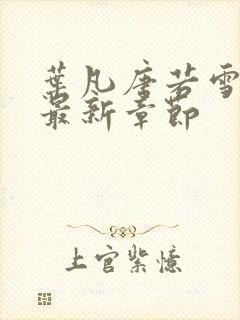 葉凡唐若雪
最新章節
上官紫憶